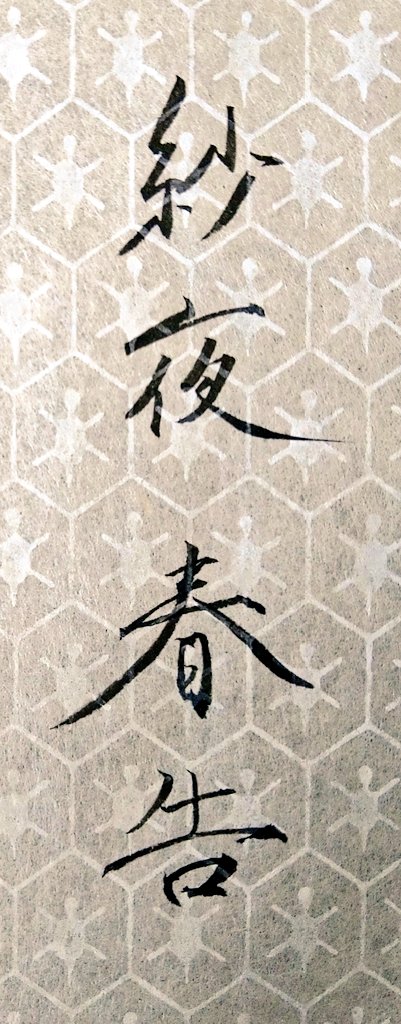 紗夜春告